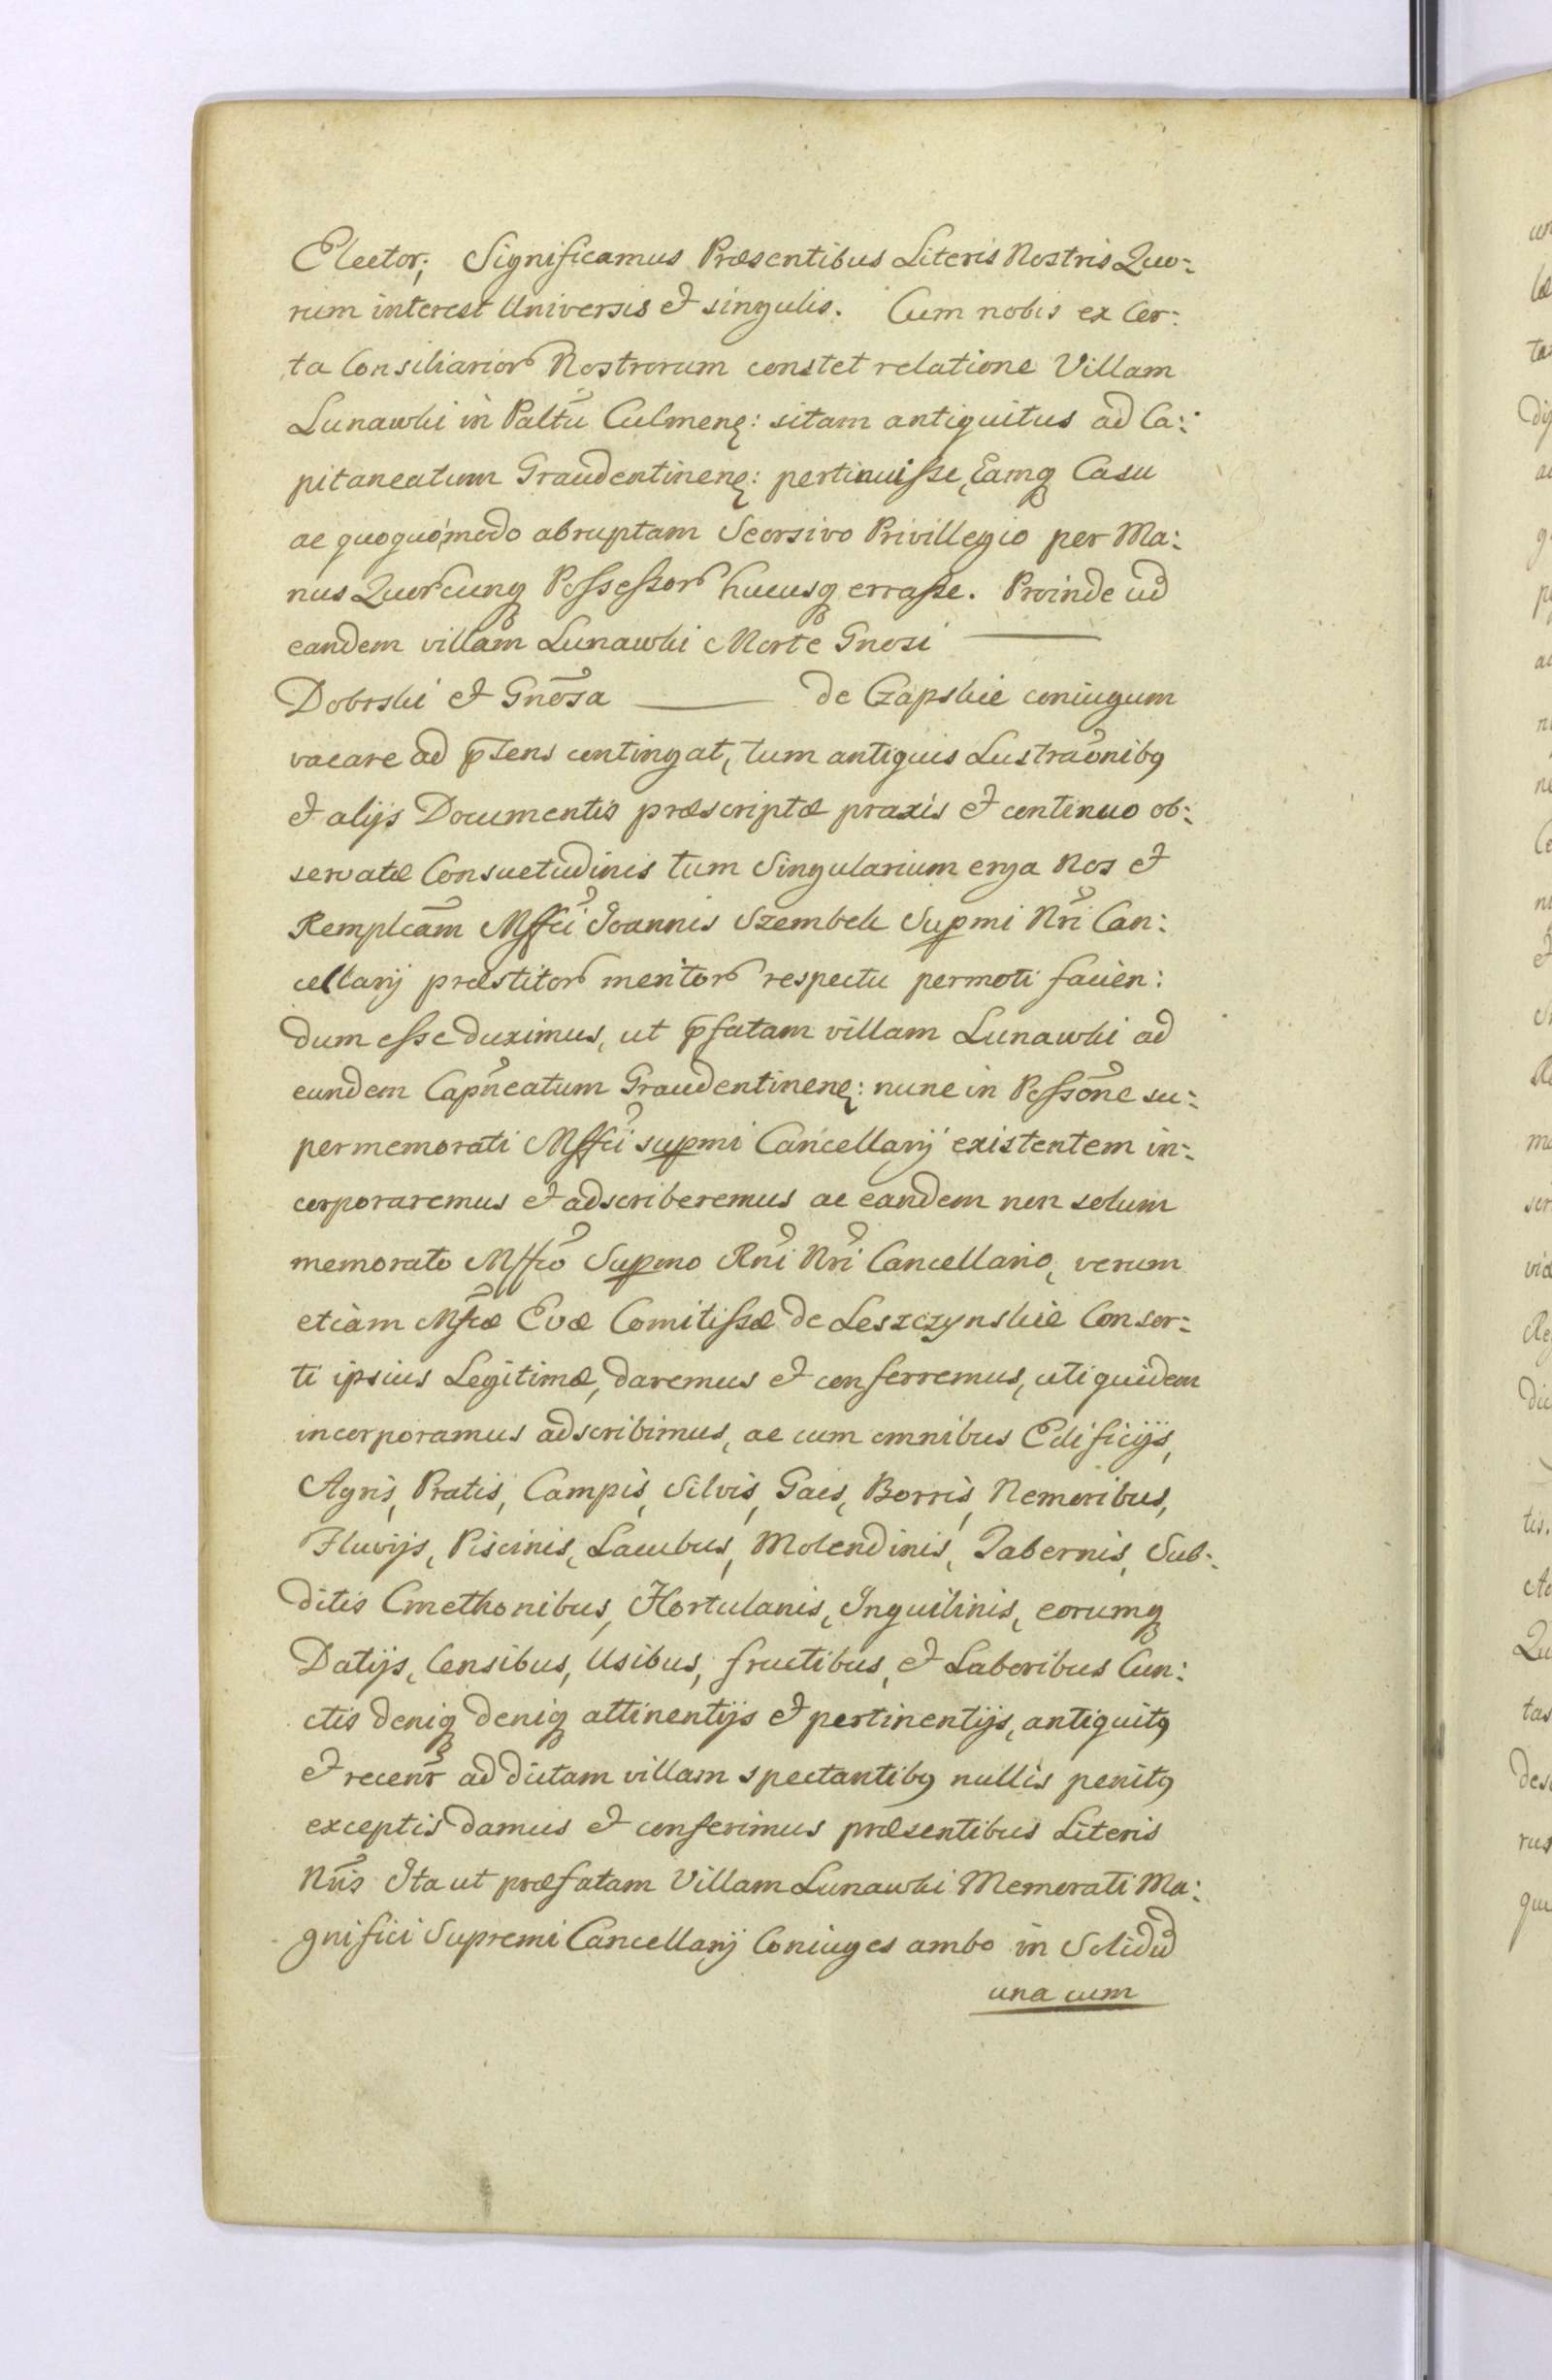 Elector; Significamus Præsentibus Literis Nostris Quo:
rum interest Universis et singulis. Cum nobis ex Cer:
ta Consiliarior Nostrorum constet relatione Villam
Lunawki in Paltu Culmens: sitam antiquitus ad Ca:
pitaneatum Graudentinens: pertinuisse, Eamq Casu
ac quoquomodo abruptam Seorsivo Privillegio per Ma:
nus Quorcunq Possessor hucusq errasse. Proinde ud
eandem villam Lunawki Morte Gnosi ———
Dobrski et Gnosa ——— de Czapskie coniugum
vacare ad pisens contingat, tum antiquis Lustraonibq
et alijs Documentis præscriptæ praxis et continuo ob:
servatæ Consuetudinis tum Singularium erga Nos et
Remplcam Mffci Joannis Szembek Supmi Nri Can:
cellarij præstitor meritor respectu permoti facien:
dum esse duximus, ut pfatam villam Lunawki ad
eundem Capneatum Graudentinens: nunc in Possone su:
permemorati Mffci supmi Cancellarij existentem in:
corporaremus et adscriberemus ac eandem non solum
memorato Mffco Supmo Rni Nri Cancellario, verum
etiam Mfcæ Evæ Comitissæ de Leszczynskie Consor:
ti ipsius Legitimæ, daremus et conferremus, uti quidem
incorporamus adscribimus, ac cum omnibus Edificijs,
Agris, Pratis, Campis, Silvis, Gais, Borris, Nemoribus,
Fluvijs, Piscinis, Lacubus, Molendinis, Tabernis, Sub:
ditis Cmethonibus, Hortulanis, Inquilinis, eorumq
Datijs, Censibus, Usibus, fructibus, et Laboribus Cun:
ctis deniq deniq attinentijs et pertinentijs, antiquitq
et recenr ad dictam villam spectantibq nullis penitq
exceptis damus et conferimus præsentibus Literis
Nris Ita ut præfatam Villam Lunawki Memorati Ma:
gnifici Supremi Cancellarij Coniuges ambo in Solidu
una cum